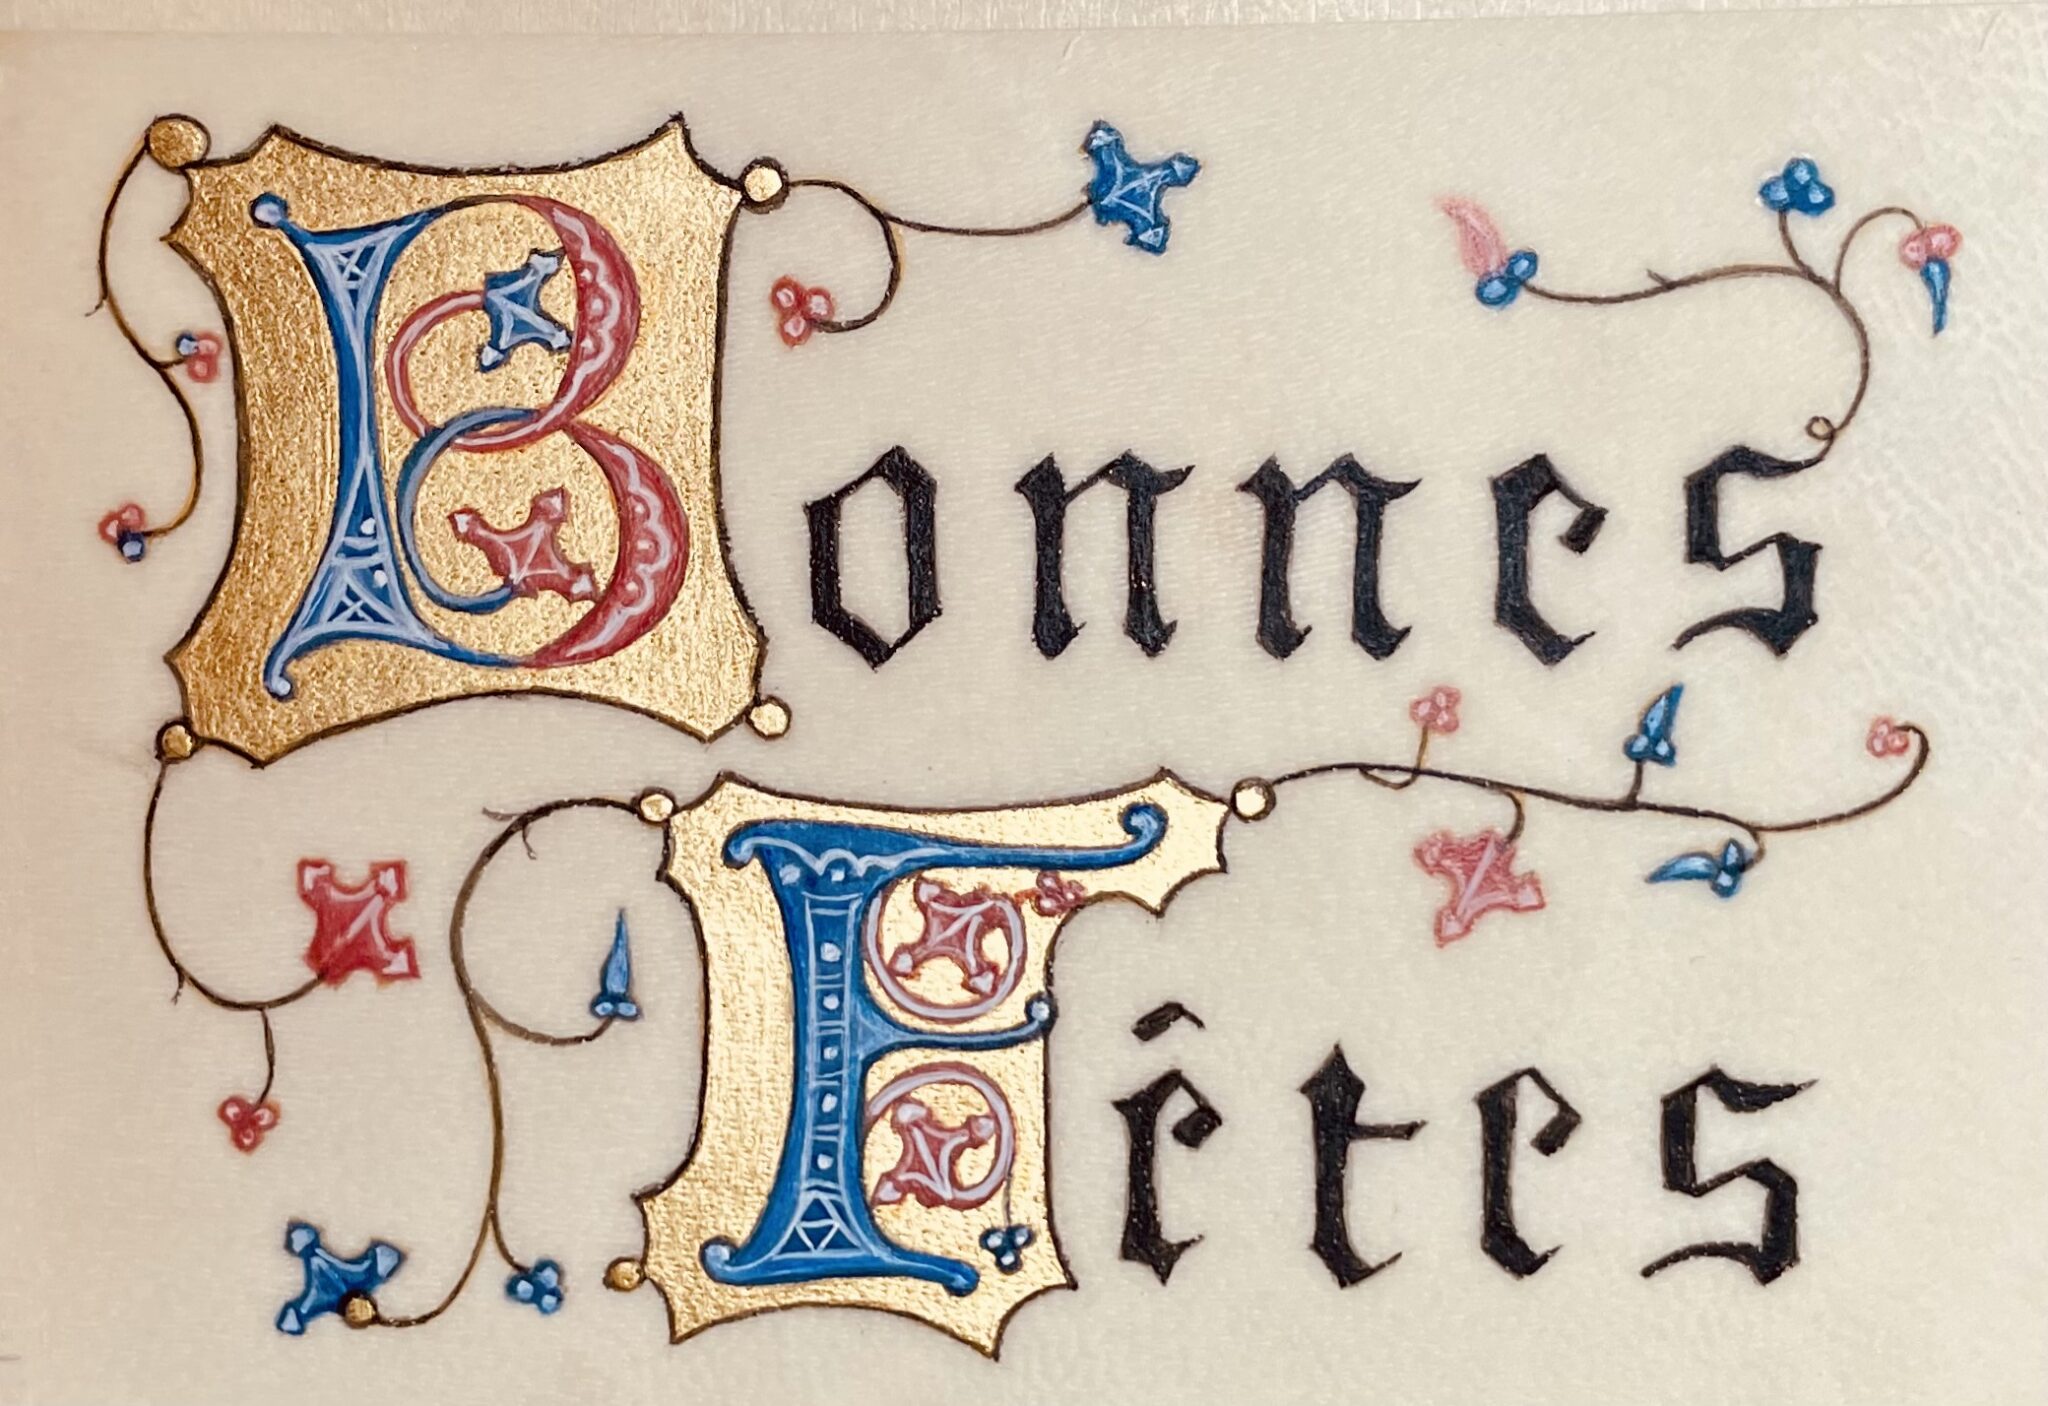 Bonnes
Fêtes